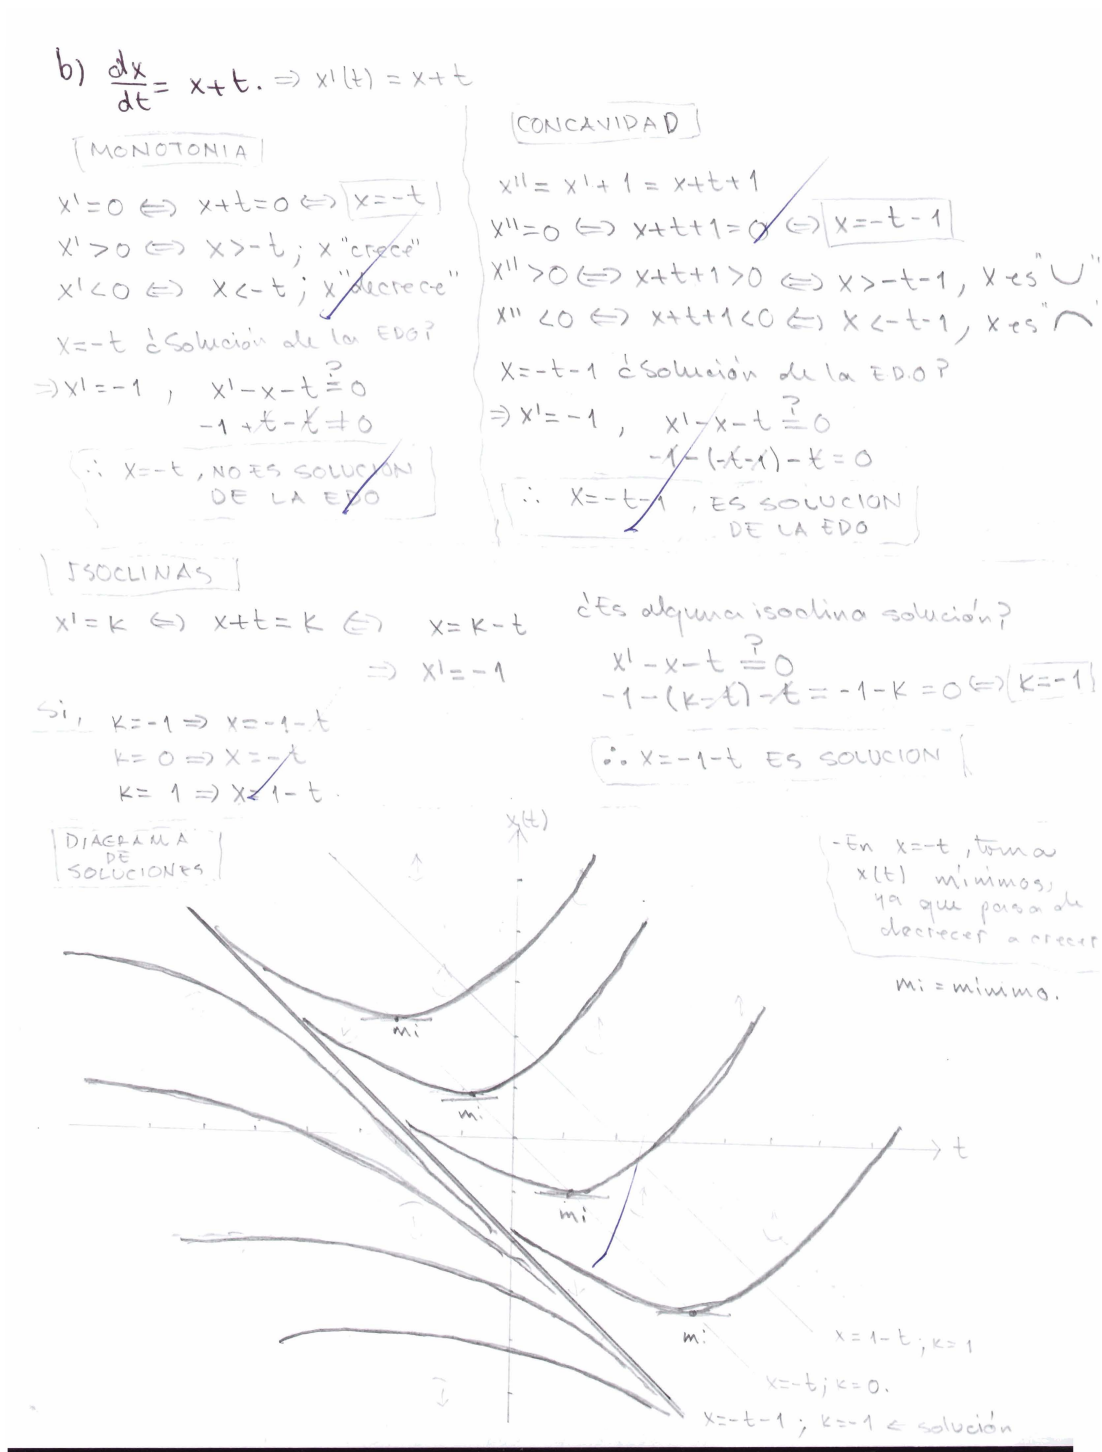 b) dx/dt = x+t. ⇒ x'(t) = x+t
MONOTONIA
x'=0 ⇔ x+t=0 ⇔ x=-t
x'>0 ⇔ x>-t; x "crece"
x'<0 ⇔ x<-t; x "decrece"
x=-t ¿Solución de la EDO?
⇒ x'=-1, x'-x-t ?= 0
-1+t-t≠0
∴ x=-t, NO ES SOLUCIÓN
DE LA EDO
CONCAVIDAD
x''= x'+1 = x+t+1
x''=0 ⇔ x+t+1=0 ⇔ x=-t-1
x''>0 ⇔ x+t+1>0 ⇔ x>-t-1, x es "∪"
x''<0 ⇔ x+t+1<0 ⇔ x<-t-1, x es "∩"
x=-t-1 ¿Solución de la EDO?
⇒ x'=-1, x'-x-t ?= 0
-1-(-t-1)-t=0
∴ x=-t-1, ES SOLUCION
DE LA EDO
ISOCLINAS
x'=k ⇔ x+t=k ⇔ x=k-t
⇒ x'=-1
Si, k=-1 ⇒ x=-1-t
k=0 ⇒ x=-t
k=1 ⇒ x=1-t
¿Es alguna isoclina solución?
x'-x-t ?= 0
-1-(k-t)-t = -1-k = 0 ⇔ k=-1
∴ x=-1-t ES SOLUCION
DIAGRAMA
DE
SOLUCIONES
x(t)
-En x=-t, toma
x(t) mínimos,
ya que pasa de
decrecer a crecer
mi = mínimo.
mi
mi
t
mi
mi
x=1-t; k=1
x=-t; k=0.
x=-t-1; k=-1 ← solución